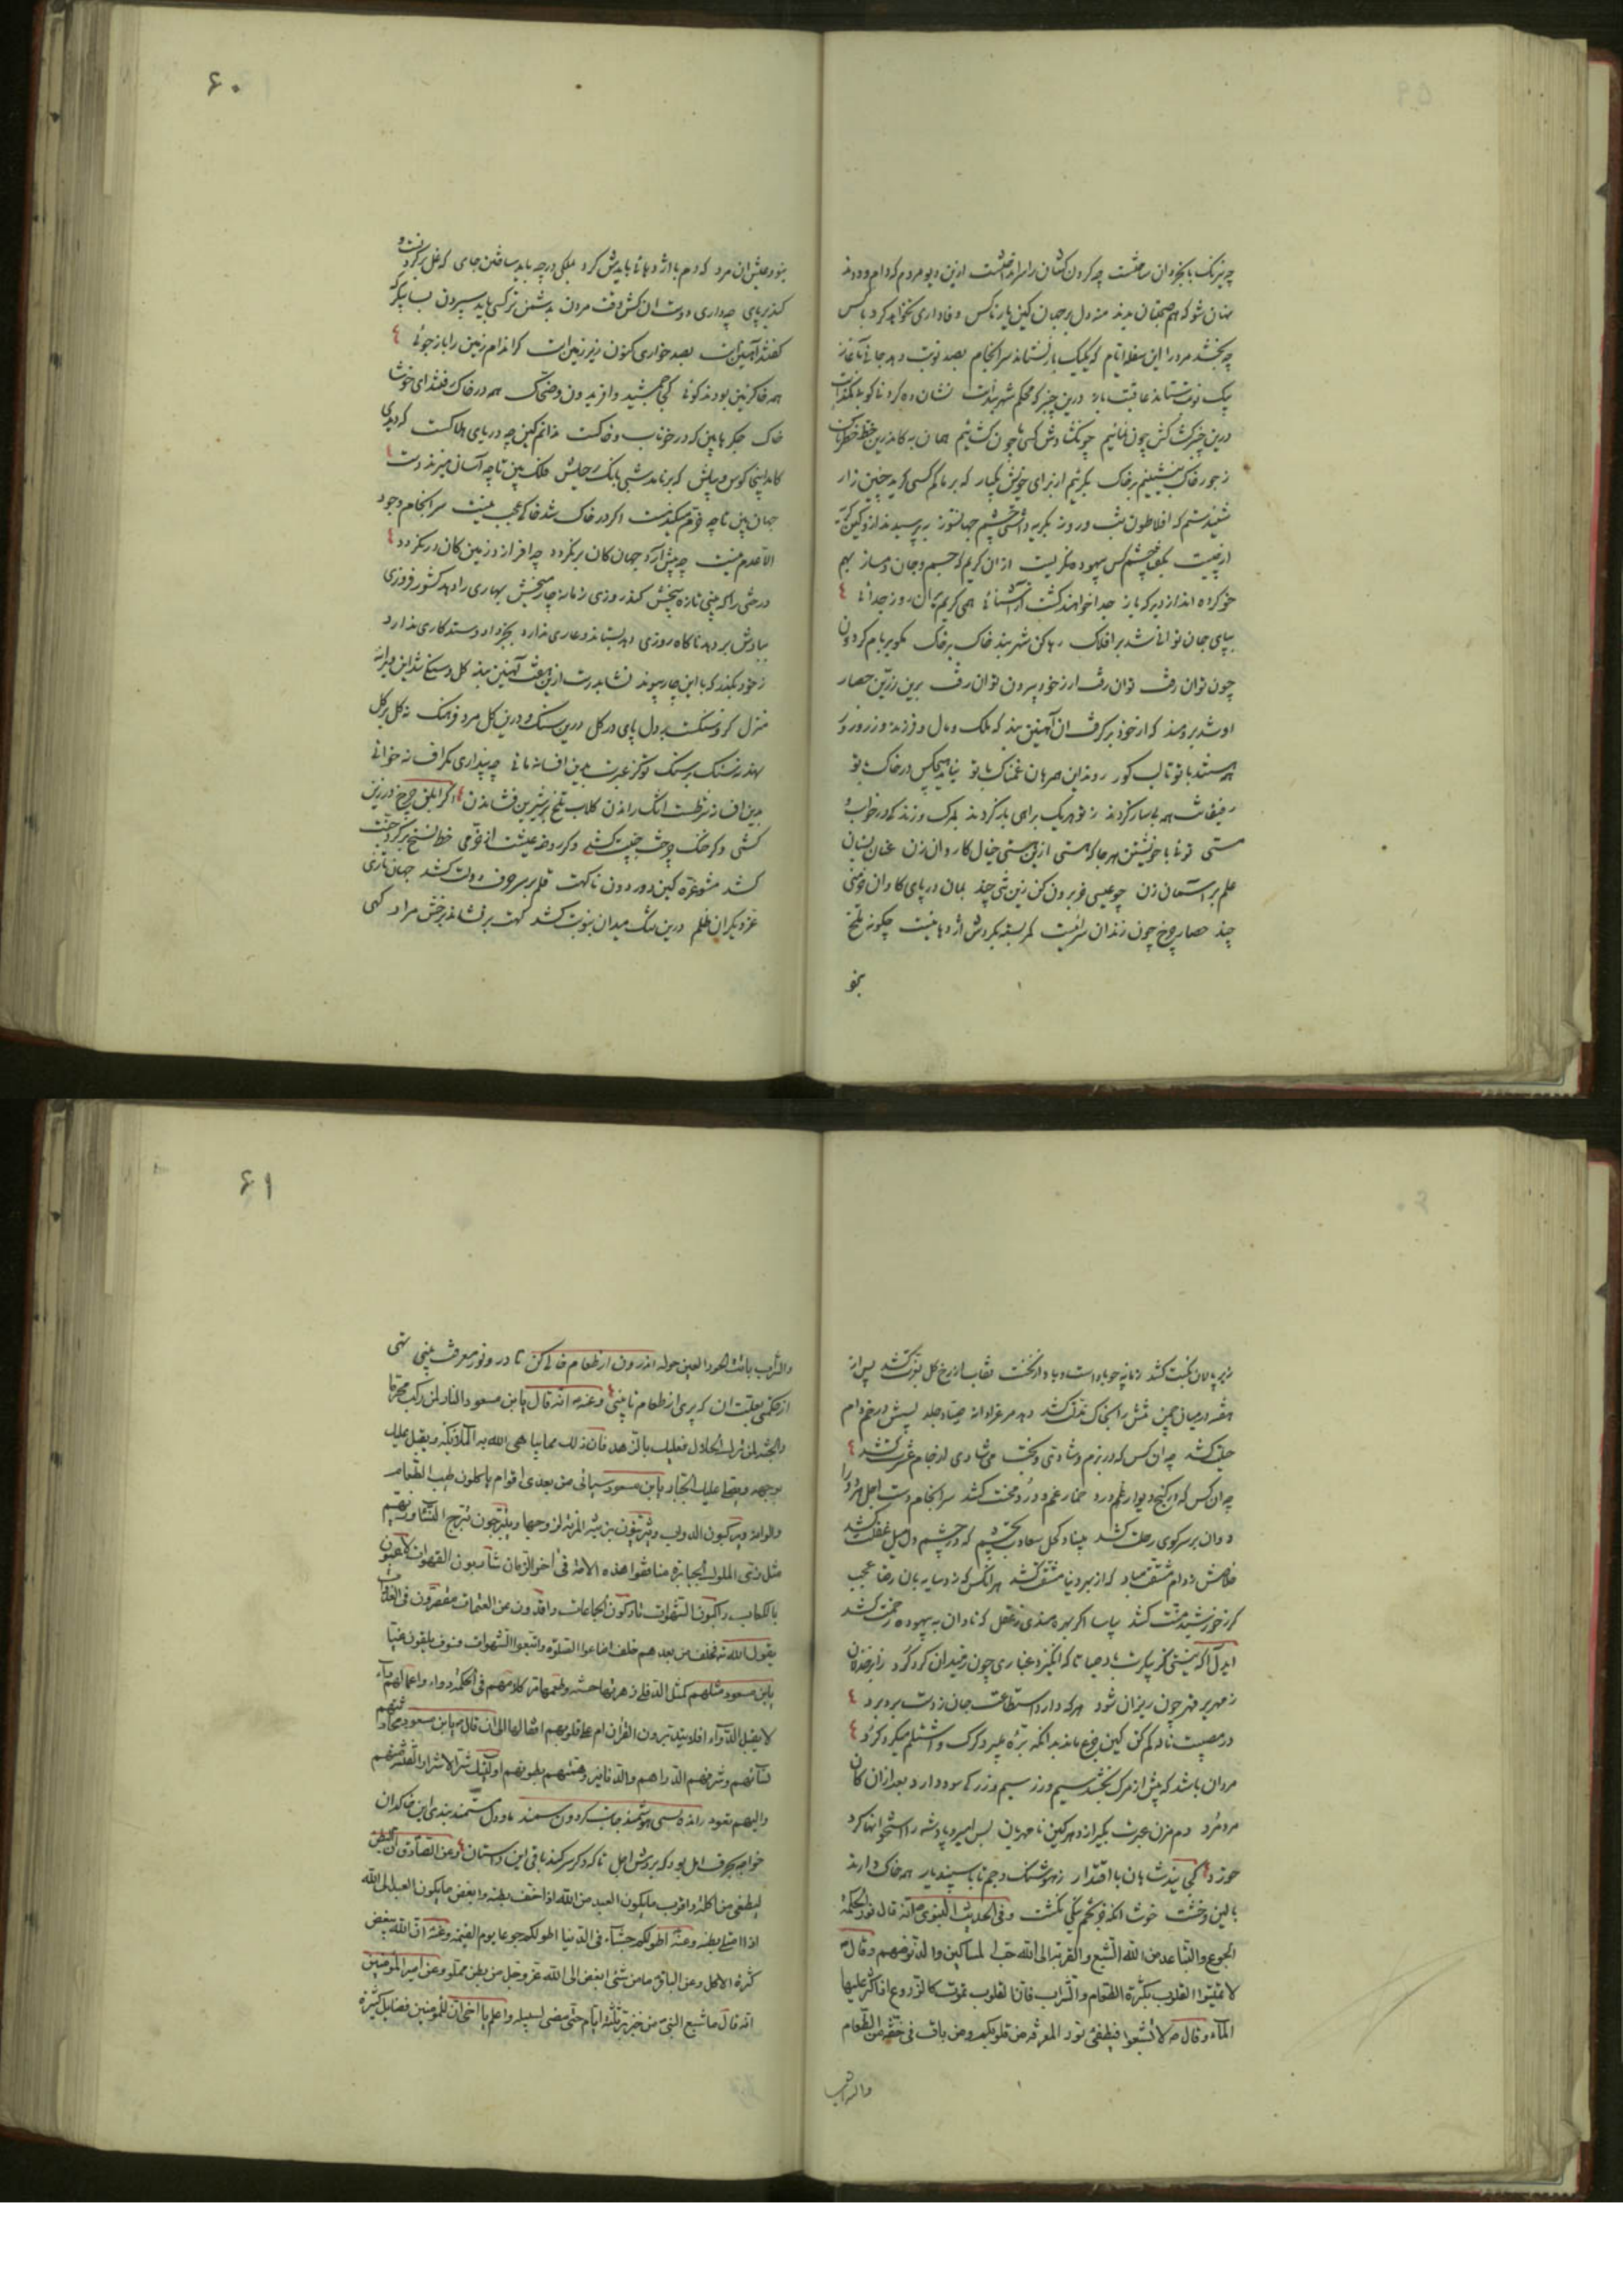 چه نیرنگ با بخردان ساختست چه گردن کشان را سر انداختست ازین دیو مردم که دام و ددند
نهان شو که هم صحبتان بدند منه دل بر جهان کین یار ناکس وفاداری نخواهد کرد با کس
چه بخشد مرد را این سفله ایام که یک یک باز نستاند سرانجام بصد نوبت دهد جانی بآغاز
بیک نوبت ستاند عاقبت باز درین چنبر که محکم شهربندیست نشان ده گردنی کو بی کمندست
درین چنبر گشایش چون نمائیم چو نگشادش کسی ما چون گشائیم همان به کاندرین
ز جور خاک بنشینیم بر خاک بگرئیم از برای خویش یکبار که بر ما کم کسی گرید چنین زار
شنیدستم که افلاطون شب و روز بگریه داشتی چشم جهانسوز بپرسیدند ازو کین گریه
از چیست بگفتا چشم کس بیهوده نگریست از آن گریم که جسم و جان دمساز بهم
خو کرده اند از دیرگه باز جدا خواهند گشت از آشنائی همی گریم بران روز جدائی
بپای جان توانی شد بر افلاک رها کن شهربند خاک بر خاک مگو بر بام گردون
چون توان رفت توان رفت ار ز خود بیرون توان رفت برین زرین حصار
او شد برومند که از خود برگرفت آن آهنین بند که ملک و مال و فرزند و زن و زور
همه هستند با تو تا لب گور روند این همرهان غمناک با تو نیاید هیچکس در خاک با تو
رفیقانت همه بدساز گردند ز تو هر یک براهی باز گردند بمرگ و زندگی در خواب و
مستی توئی با خویشتن هر جا که هستی ازین مشتی خیال کاروان زن عنان بستان
علم بر آسمان زن چو عیسی خر برون کن زین تنی چند بمان در پای گاوان خرمنی
چند حصار چرخ چون زندان سرائیست کمر بسته بگردش اژدهائیست چگونه تلخ
بنو
۶۰
نبود عیش آن مرد که دم با اژدهائی بایدش کرد
کند بر پای چه داری دوست آنکش وقت مردن بدشمن تر کسی باید سپردن بسا پیکر
که گفتند آهنین است بصد خواری کنون زیر زمین است گر اندام زمین را باز جوئی
همه خاک زمین بودند گوئی کجا جمشید و افریدون و ضحاک همه در خاک رفتند ای خوشا
خاک جگرها بین که در خوناب و خاکست ندانم کین چه دریای هلاکست که دیدی
کامد اینجا کوس و پیلش که برنامد شبی بانگ رحیلش فلک بین تا چه آسان میزند دست
جهان بین تا چه خرم میکند مست اگر در خاک شد خاکی عجب نیست سرانجام وجود
الا عدم نیست چه پیش آرد جهان کان بر نگردد چه افرازد زمین کان در نگردد
درختی را که بینی تازه بیخش کند روزی زمانه چارمیخش بهاری را دهد کشور فروزی
ببادش بر دهد ناگاه روزی دهد بستاند و عاری ندارد بجز داد و ستد کاری ندارد
ز خود بگذر که با این چار پیوند نشاید رست ازین هفت آهنین بند گل و سنگ شد این ویرانه
منزل گر و سنگست بد دل پای در گل درین سنگ و درین گل مرد فرهنگ نه گل بر گل
نهد نه سنگ بر سنگ تو کز عبرت بدین افسانه مانی چه پنداری مگر افسانه خوانی
بدین افسانه شرطست اشک راندن گلاب تلخ بر شیرین فشاندن گر ابلق چرخ در زین
کشی
کشد مشو غره کین دور دون ناگهت قلم بر سر حرف دولت کشد جهان بازی
درین تنگ میدان بنوبت کشد گهت بر نشاند برخش مراد گهی
زیر پالان نکبت کشد زمانه چو باد است و باد از نخست نقاب از رخ گل بعزت کشد پس از
هفته در میان چمن تنش را بخاک مذلت کشد دهد مرغ را دانه صیاد جلد پسش در خم دام
حیلت کشد چه آن کس که در بزم شادی و بخت می شادی از جام عشرت کشد
چه آن کس که در کنج دیوار غم درد خمار غم و درد و محنت کشد سرانجام دست اجل هر دو را
دوان بر سر کوی رحلت کشد
ز دام مشقت مباد که از بهر دنیا مشقت کشد هر آنکس که در سایه
گر ز خورشید منت کشد بیاسا اگر بهره مندی ز عقل که نادان به بیهوده زحمت کشد
ایدل آگه نیستی کز پیکرت باد صبا
ز مهریر قهر چون ریزان شود هر که دارد استطاعت جان ز دستت برد برد
در مصیبت ناله کم کن
مردان باشد که پیش از مرگ بخشد سیم و زر سیم و زر کی سود دارد بعد از آن کان
مرد مرد دم مزن عبرت بگیر از دهر کین نامهربان بس امیر و پادشه را استخوانها کرد
خورد کی بیند شاهان با اقتدار ز هوشنگ و جم تا باسپندیار همه خاک دارند
بالین و خشت خوش آنکه جز تخم نیکی نکشت و فی الحدیث النبوی ص انه قال نور الحکمة
الجوع والتباعد من الله الشبع والقربة الی الله حب المساکین والدنو منهم وقال ص
لا تمیتوا القلوب بکثرة الطعام والشراب فان القلوب تموت کالزروع اذا کثر علیها
الماء وقال ص لا تشبعوا فیطفئ نور المعرفة من قلوبکم ومن بات فی خفة من الطعام
والشراب
۶۱
والشراب باتت الحور العین حوله اندرون از طعام خالی دار تا درو نور معرفت بینی تهی
از حکمتی بعلت آن که پری از طعام تا بینی وعنه ص انه قال یابن مسعود والنار لمن رکب محرما
والجنة لمن ترک الحلال فعلیک بالزهد فان ذلک مما یباهی الله به الملائکة ویقبل علیک
بوجهه ویصلی علیک الجبار یابن مسعود سیأتی من بعدی اقوام یاکلون طیب الطعام
والوانه ویرکبون الدواب ویتزینون بزینة المرئة لزوجها ویتبرجون تبرج النساء وزیهم
مثل زی الملوک الجبابرة منافقوا هذه الامة فی آخر الزمان شاربون القهوات لاعبون
بالکعاب راکبون الشهوات تارکون الجماعات راقدون عن العتمات مفرطون فی الغداة
یقول الله تع فخلف من بعدهم خلف اضاعوا الصلوة واتبعوا الشهوات فسوف یلقون غیا
یابن مسعود مثلهم کمثل الدفلی زهرتها حسنة وطعمها مر کلامهم فی الحکمة دواء واعمالهم داء
لا یقبل الدواء افلا یتدبرون القرآن ام علی قلوبهم اقفالها الی ان قال ص یابن مسعود محاریبهم
نساؤهم وشرفهم الدراهم والدنانیر وهمتهم بطونهم اولئک شر الاشرار الفتنة منهم
والیهم تعود
خواجه وعن الصادق ع ان البطن
لیطغی من اکله واقرب ما یکون العبد من الله اذا خف بطنه وابغض ما یکون العبد الی الله
اذا امتلی بطنه وعنه ع اطولکم جشاء فی الدنیا اطولکم جوعا یوم القیمة وعنه ع ان الله یبغض
کثرة الاکل وعن الباقر ع ما من شئ ابغض الی الله عز وجل من بطن مملو وعن امیر المؤمنین
انه قال ما شبع النبی من خبز بر ثلثة ایام حتی مضی لسبیله واعلم یا اخی ان للمؤمنین فضایل کثیرة